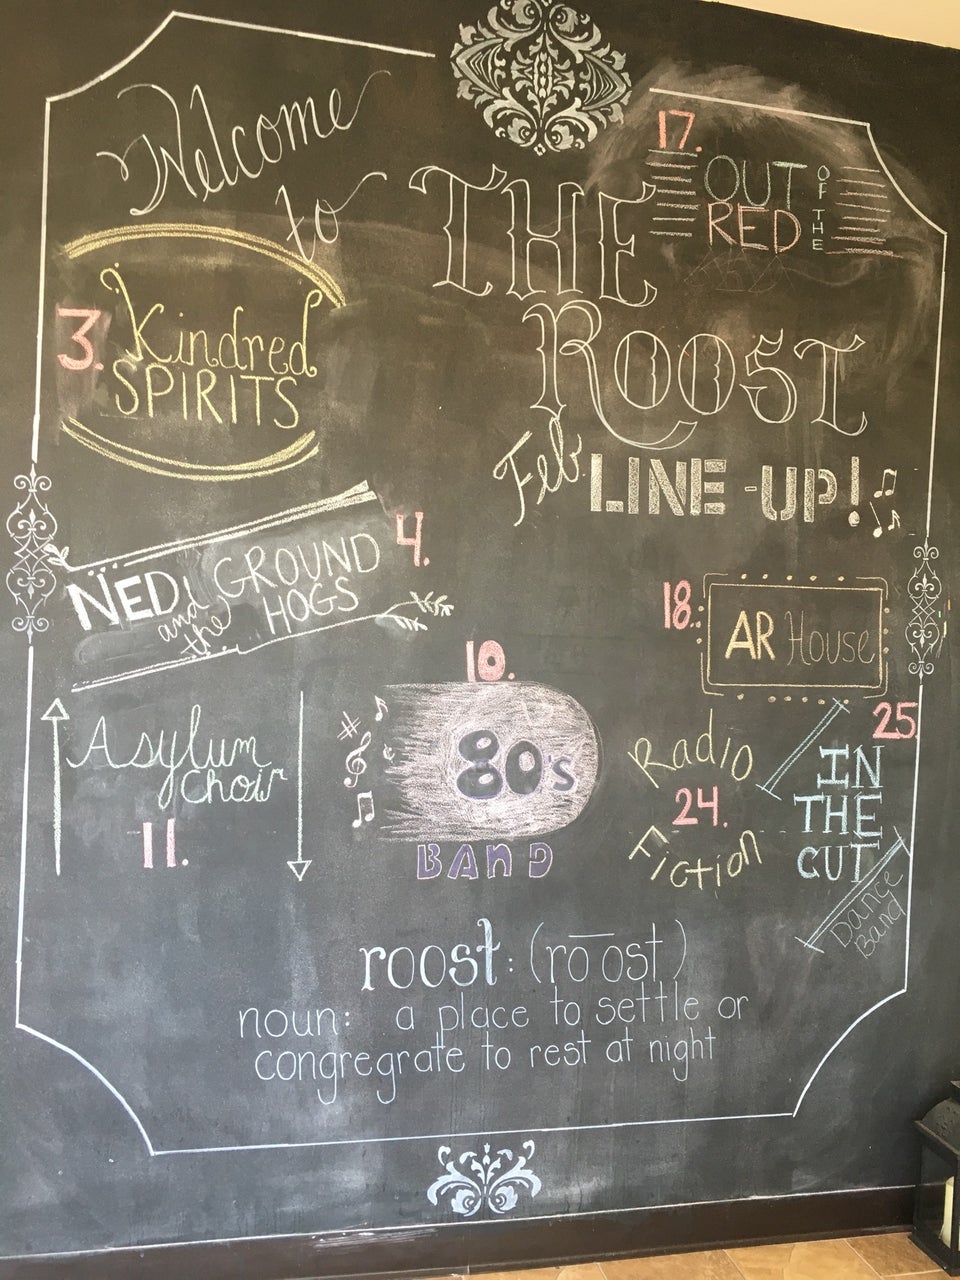 Welcome
to THE
ROOST
Feb LINE-UP!
3. Kindred
SPIRITS
4.
NED and the GROUND
HOGS
10.
80's
BAND
Asylum
Choir
11.
17.
OUT OF THE
RED
18. AR House
Radio
24.
Fiction
25
IN
THE
CUT
Dance
Band
roost: (rōost)
noun: a place to settle or
congregrate to rest at night